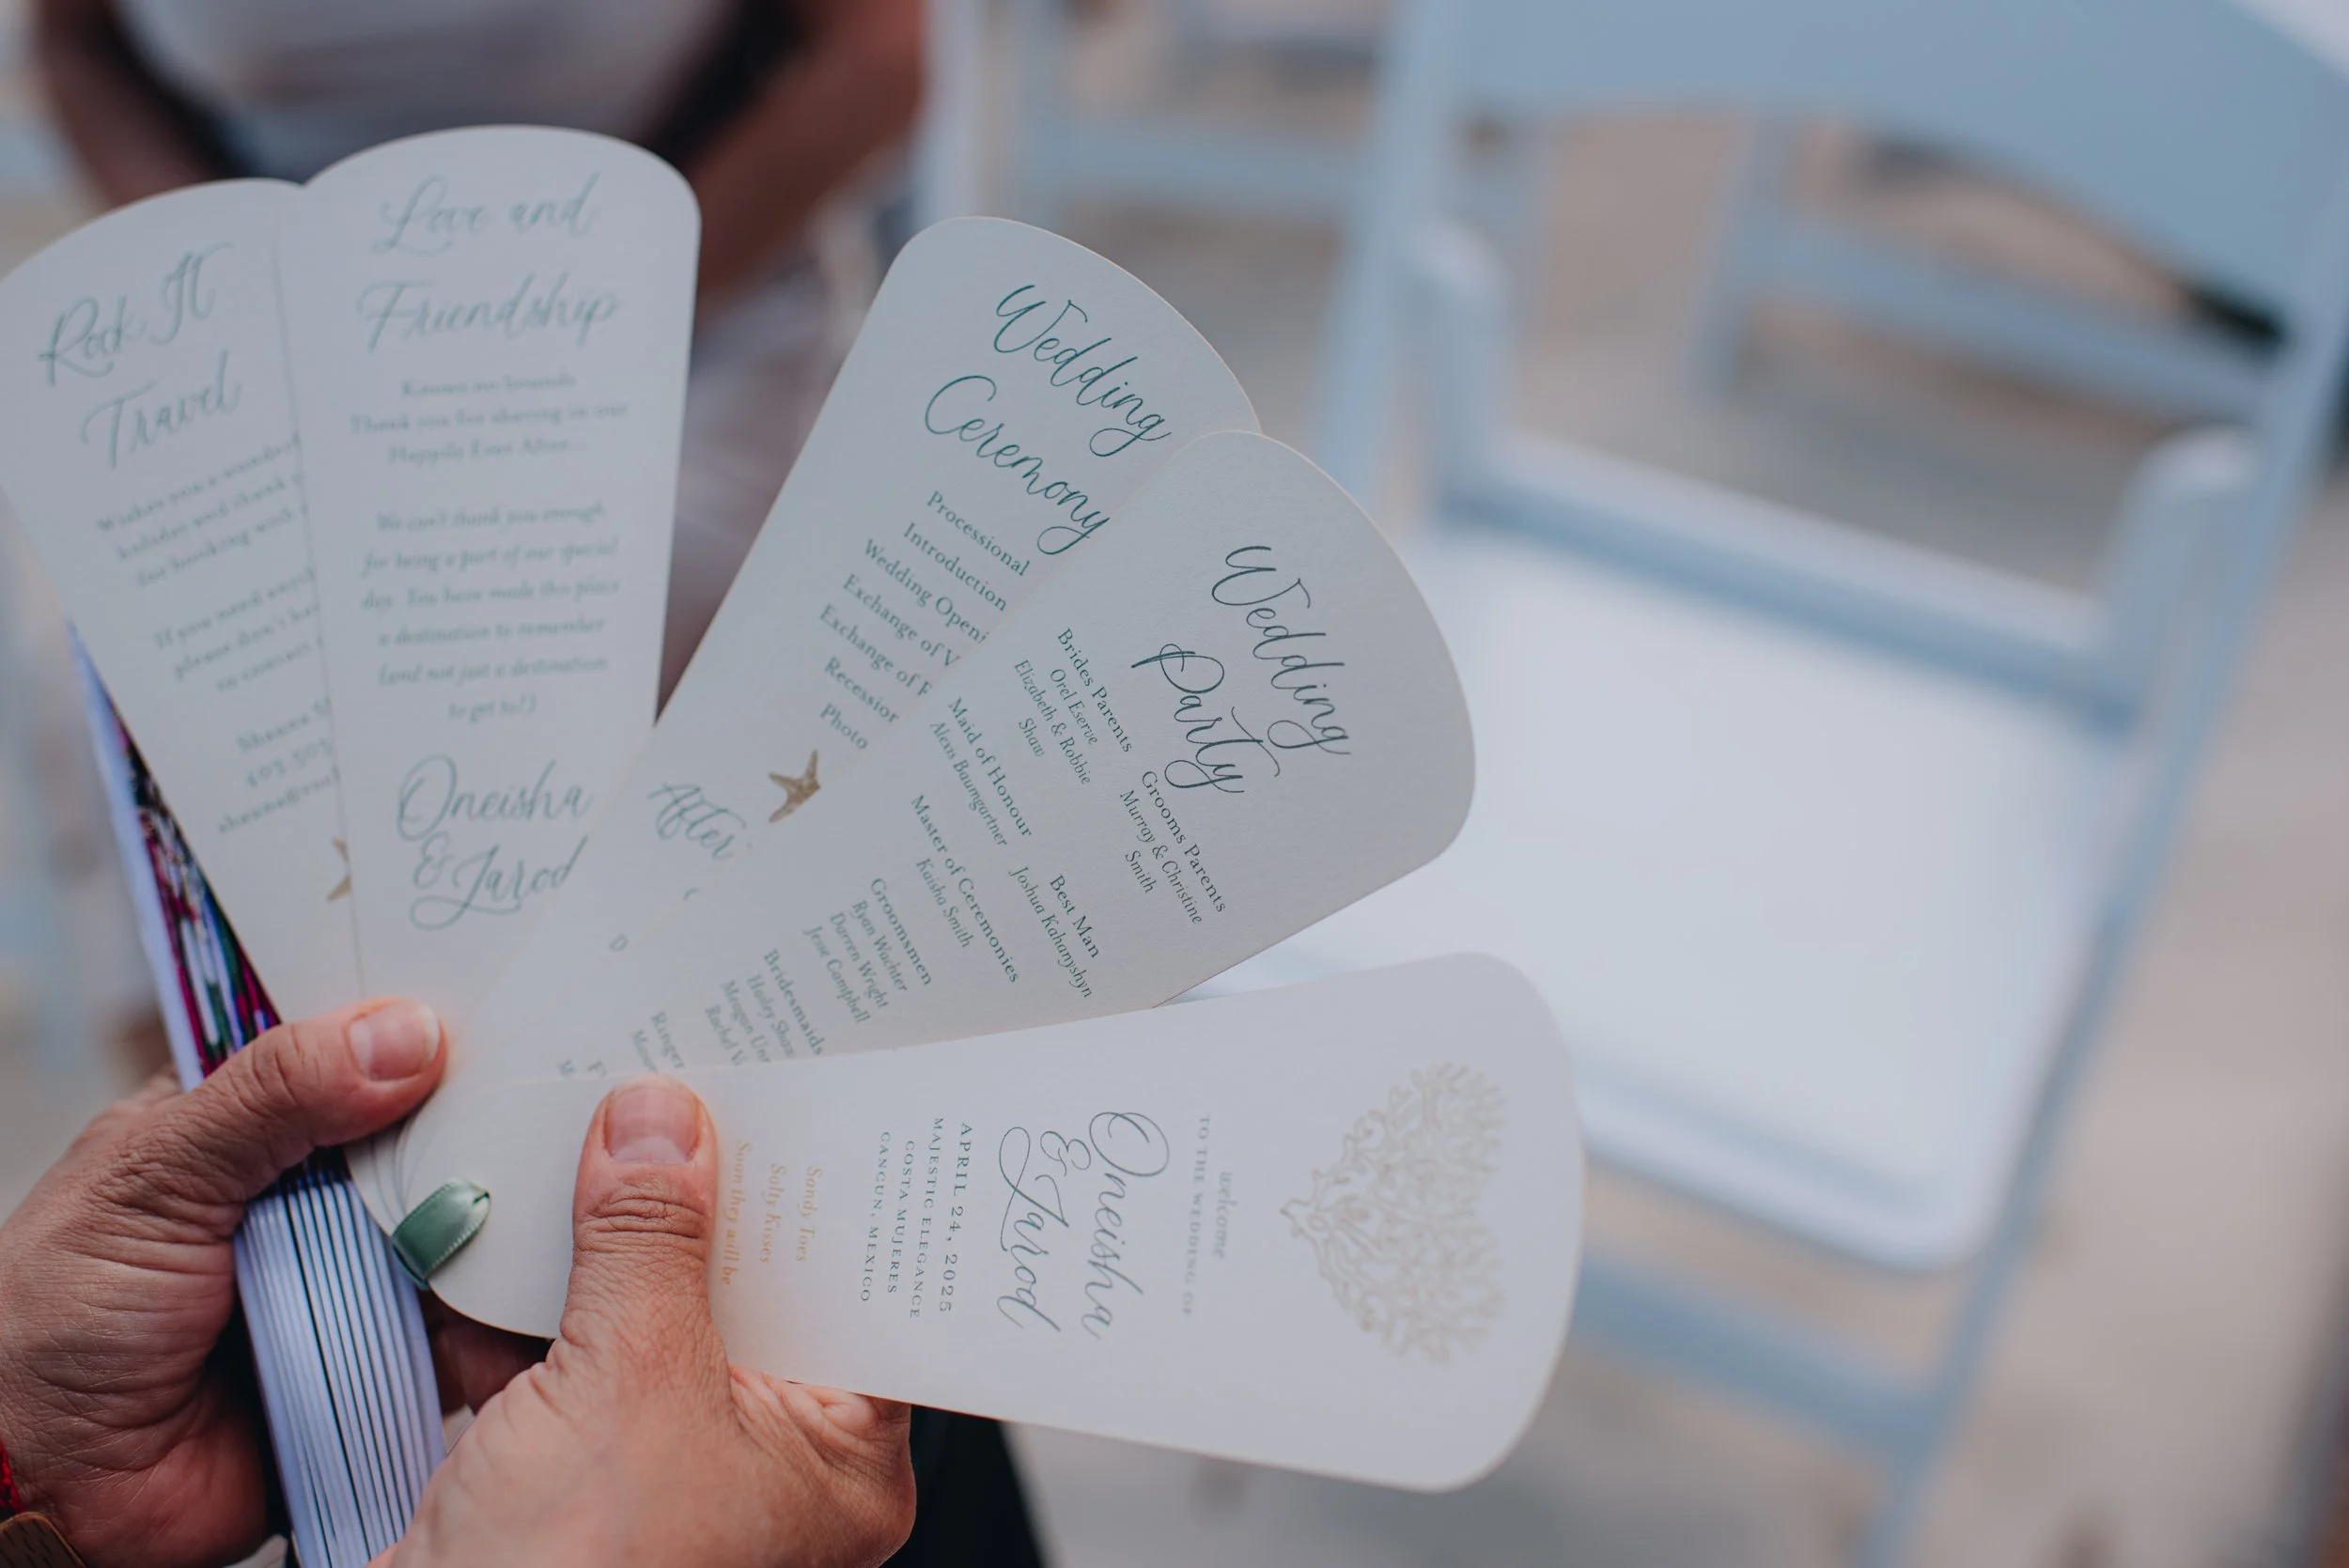 Rock It
Travel
Wishes you a
holiday and thank
for booking with
If you need
please don't
to contact
Shauna
Love and
Friendship
Knows no bounds
Thank you for sharing in our
Happily Ever After...
We can't thank you enough
for being a part of our special
day. You have made this place
a destination to remember
(and not just a destination
to get to!)
Oneisha
& Jarod
Wedding
Ceremony
Processional
Introduction
Wedding
Exchange of
Exchange of
Photo
After
Wedding
Party
Brides Parents
Orel Eserve
Elizabeth & Robbie
Shaw
Grooms Parents
Murray & Christine
Smith
Maid of Honour
Alexis Baumgartner
Best Man
Joshua Kahanyshyn
Master of Ceremonies
Kaisha Smith
Groomsmen
Ryan Wachter
Darren Wright
Jesse Campbell
Bridesmaids
Hailey
Meagan
Rachel
welcome
TO THE WEDDING OF
Oneisha
& Jarod
APRIL 24, 2025
MAJESTIC ELEGANCE
COSTA MUJERES
CANCUN, MEXICO
Sandy Toes
Salty Kisses
Soon they will be